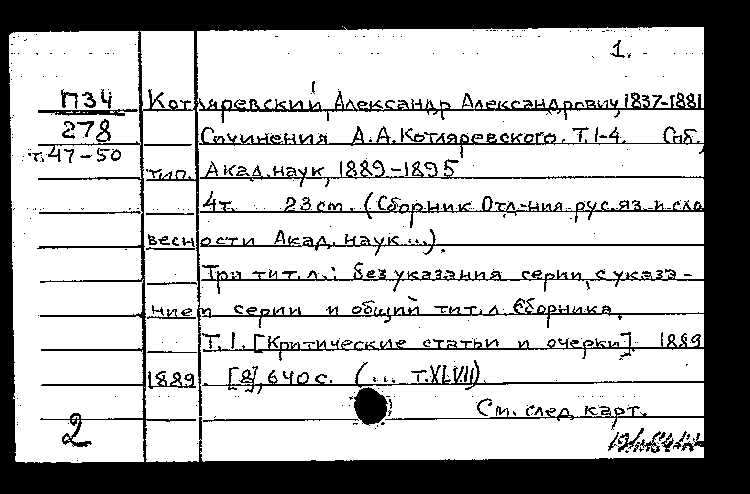 1.
П34 Котляревский, Александр Александрович, 1837-1881
278 Сочинения А.А.Котляревского. Т.1-4. Спб.,
т.47-50
тип. Акад.наук, 1889-1895
4т. 23см. (Сборник Отд-ния рус.яз. и сло
весности Акад. наук ...).
Три тит.л.: без указания серии, с указа-
нием серии и общий тит.л. Сборника.
Т.1. [Критические статьи и очерки]. 1889
1889. [2], 640 с. (... т.XLVII).
См. след. карт.
2